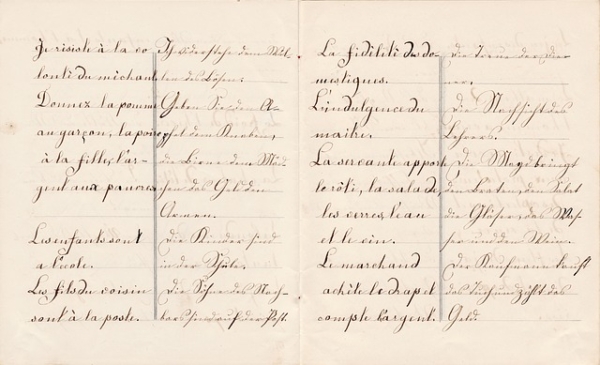 Je risiste à la vo
lonti du michant
Donnez la pomme
au garçon, la poire
à la fille, l'ar-
gent aux pauvres
Les enfants sont
a l'ecole.
Les fils du voisin
sont à la poste.
Ich widerstehe dem Wil-
len des Bösen.
Geben Sie den A-
pfel dem Knaben,
die Birne dem Mäd
chen das Geld den
Armen.
Die Kinder sind
in der Schule.
Die Söhne des Nach-
bars sind auf der Post.
La fidiliti des do-
mestiques.
L'indulgence du
maitre.
La servante apporte
le rôti, la salade,
les verres, l'eau
et le vin.
Le marchand
achite le drap et
compte l'argent.
Die Treue der Die-
ner.
Die Nachsicht des
Lehrers.
Die Magd bringt
den Braten, den Salat
die Gläser, das Was-
ser und den Wein.
Der Kaufmann kauft
das Tuch und zählt das
Geld.